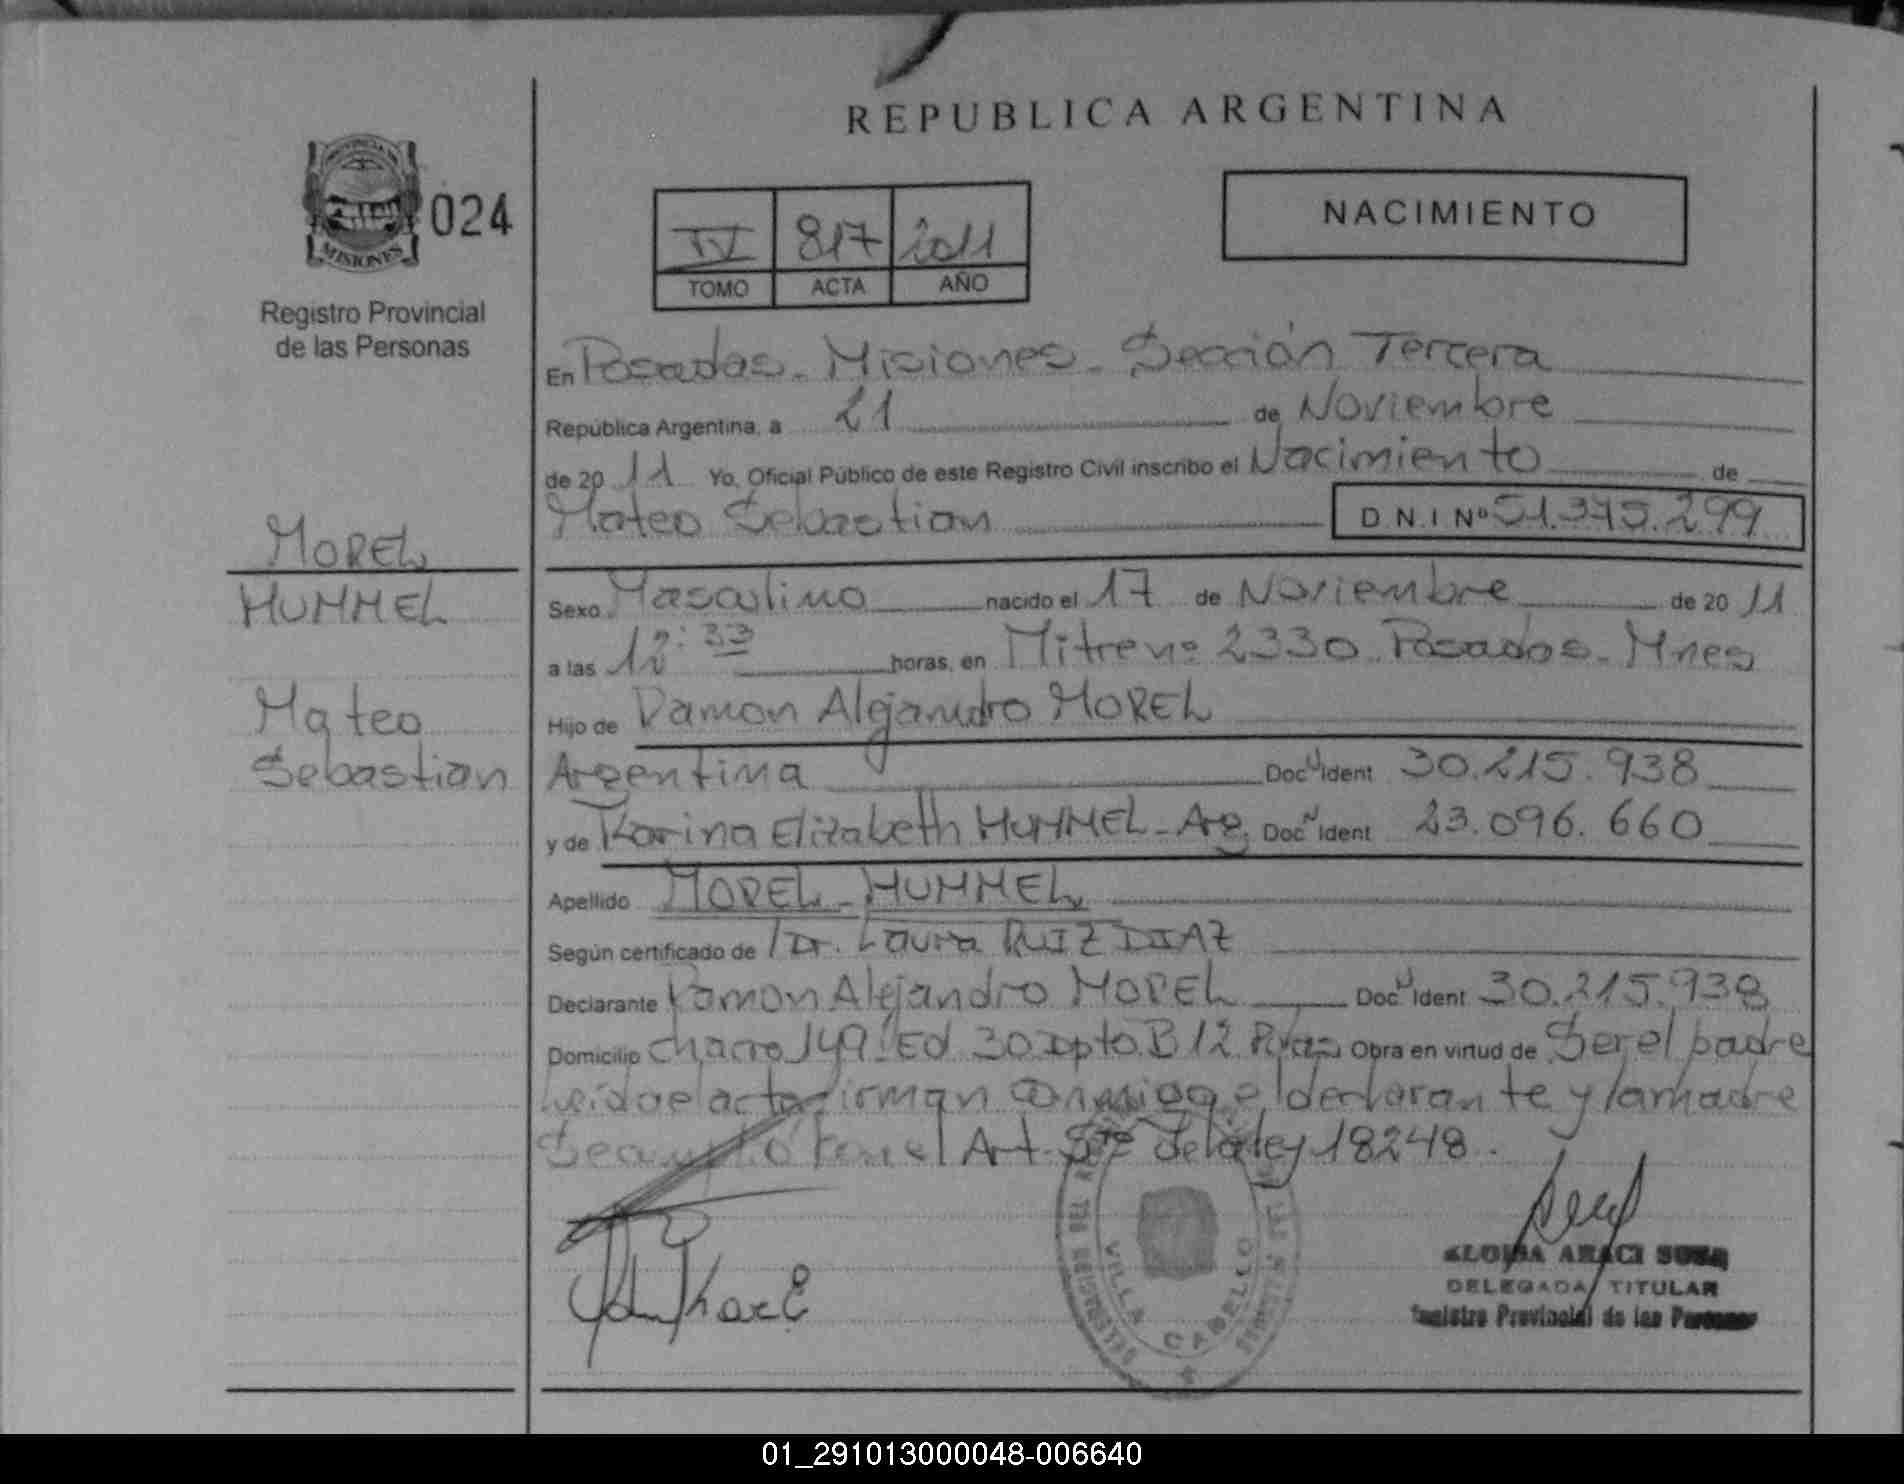 REPUBLICA ARGENTINA
PROVINCIA DE
MISIONES
024
Registro Provincial
de las Personas
IV 817 2011
TOMO ACTA AÑO
NACIMIENTO
En Posadas - Misiones - Sección Tercera
República Argentina, a 21 de Noviembre
de 20 11 Yo, Oficial Público de este Registro Civil inscribo el Nacimiento de
Mateo Sebastian D.N.I Nº 51.375.299
MOREL
HUMMEL
Mateo
Sebastian
Sexo Masculino nacido el 17 de Noviembre de 20 11
a las 12:33 horas, en Mitre nº 2330 Posadas - Mnes
Hijo de Ramon Alejandro MOREL
Argentina Doc N Ident 30.215.938
y de Karina Elizabeth HUMMEL - Arg. Doc N Ident 23.096.660
Apellido MOREL - HUMMEL
Según certificado de Dr. Laura RUIZ DIAZ
Declarante Ramon Alejandro MOREL Doc N Ident 30.215.938
Domicilio Chacra 149 Ed 30 Dpto B 12 Pdas Obra en virtud de Ser el padre
Leida el acta firman conmigo el declarante y la madre
Se cumplió con el Art. de la ley 18248.
VILLA CABELLO
ARACI
DELEGADA TITULAR
Registro Provincial de las Personas
01_291013000048-006640